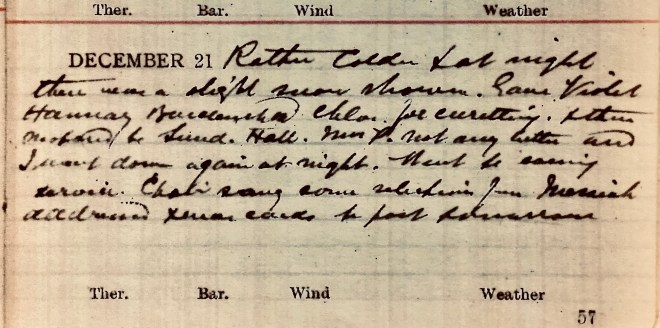 Ther. Bar. Wind Weather
DECEMBER 21 Rather Colder & at night
there was a slight snow shower. Gave Violet
Hannay Chlor. for curetting. & then
to Sund. Hall. Mrs P. not any better and
I went down again at night. Went to evening
service. Choir sang some selections from Messiah
addressed Xmas cards to post tomorrow
Ther. Bar. Wind Weather
57